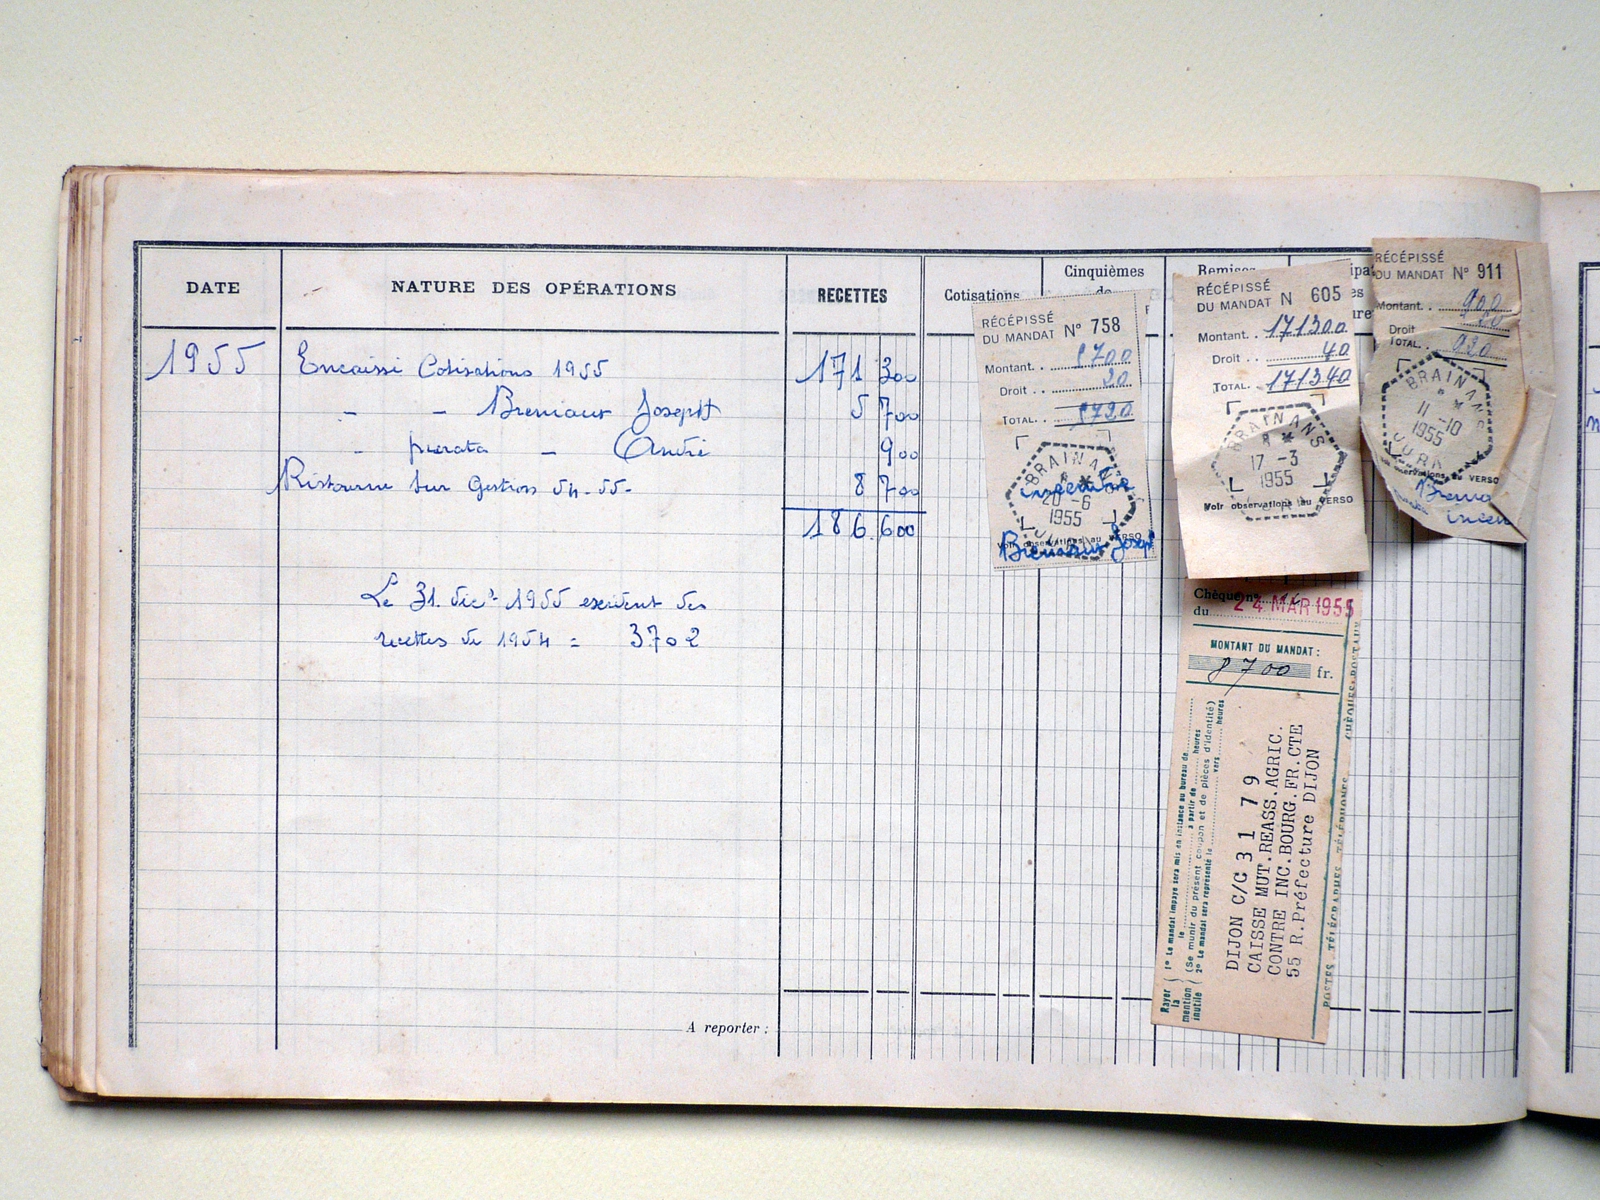 DATE
NATURE DES OPÉRATIONS
RECETTES
Cotisations
Cinquièmes
de
Remises
1955 Encaissé Cotisations 1955 171 300
- - Breniaux Joseph 5 700
- prorata - André 900
Ristourne sur Gestion 54-55- 8 700
186 600
Le 31 déc. 1955 excédent des
recettes de 1954 = 3702
A reporter :
RÉCÉPISSÉ
DU MANDAT N° 758
Montant. . 5700
Droit . . 20
TOTAL. . 5720
BRAINA
20-6
1955
incendie
Voir observations au VERSO
Breniaux Josep
RÉCÉPISSÉ
DU MANDAT N 605
Montant. . 171300
Droit . . 40
TOTAL. . 171340
BRAINANS
17 -3
1955
Voir observations au VERSO
RÉCÉPISSÉ
DU MANDAT N° 911
Montant. . 900
Droit . . 20
TOTAL. . 920
BRAINANS
11 -10
1955
JURA
observations au VERSO
Brenia
incen
Chèque n°
du 24 MAR 1955
MONTANT DU MANDAT :
8700 fr.
Rayer la mention inutile
1° Le mandat impayé sera mis en instance au bureau de
le à partir de heures
(Se munir du présent coupon et de pièces d'identité)
2° Le mandat sera représenté le vers heures
DIJON C/C 31 79
CAISSE MUT.REASS.AGRIC.
CONTRE INC.BOURG.FR.CTE
55 R.Préfecture DIJON
POSTES, TÉLÉGRAPHES, TÉLÉPHONES
CHÈQUES POSTAUX